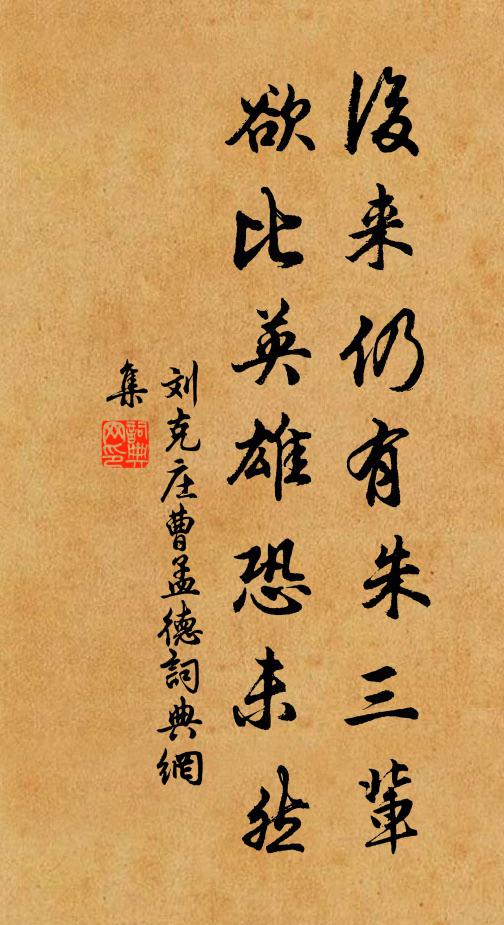 後来仍有朱三輩
欲比英雄恐未然
刘克庄曹孟德詞典網
集
詞典網印